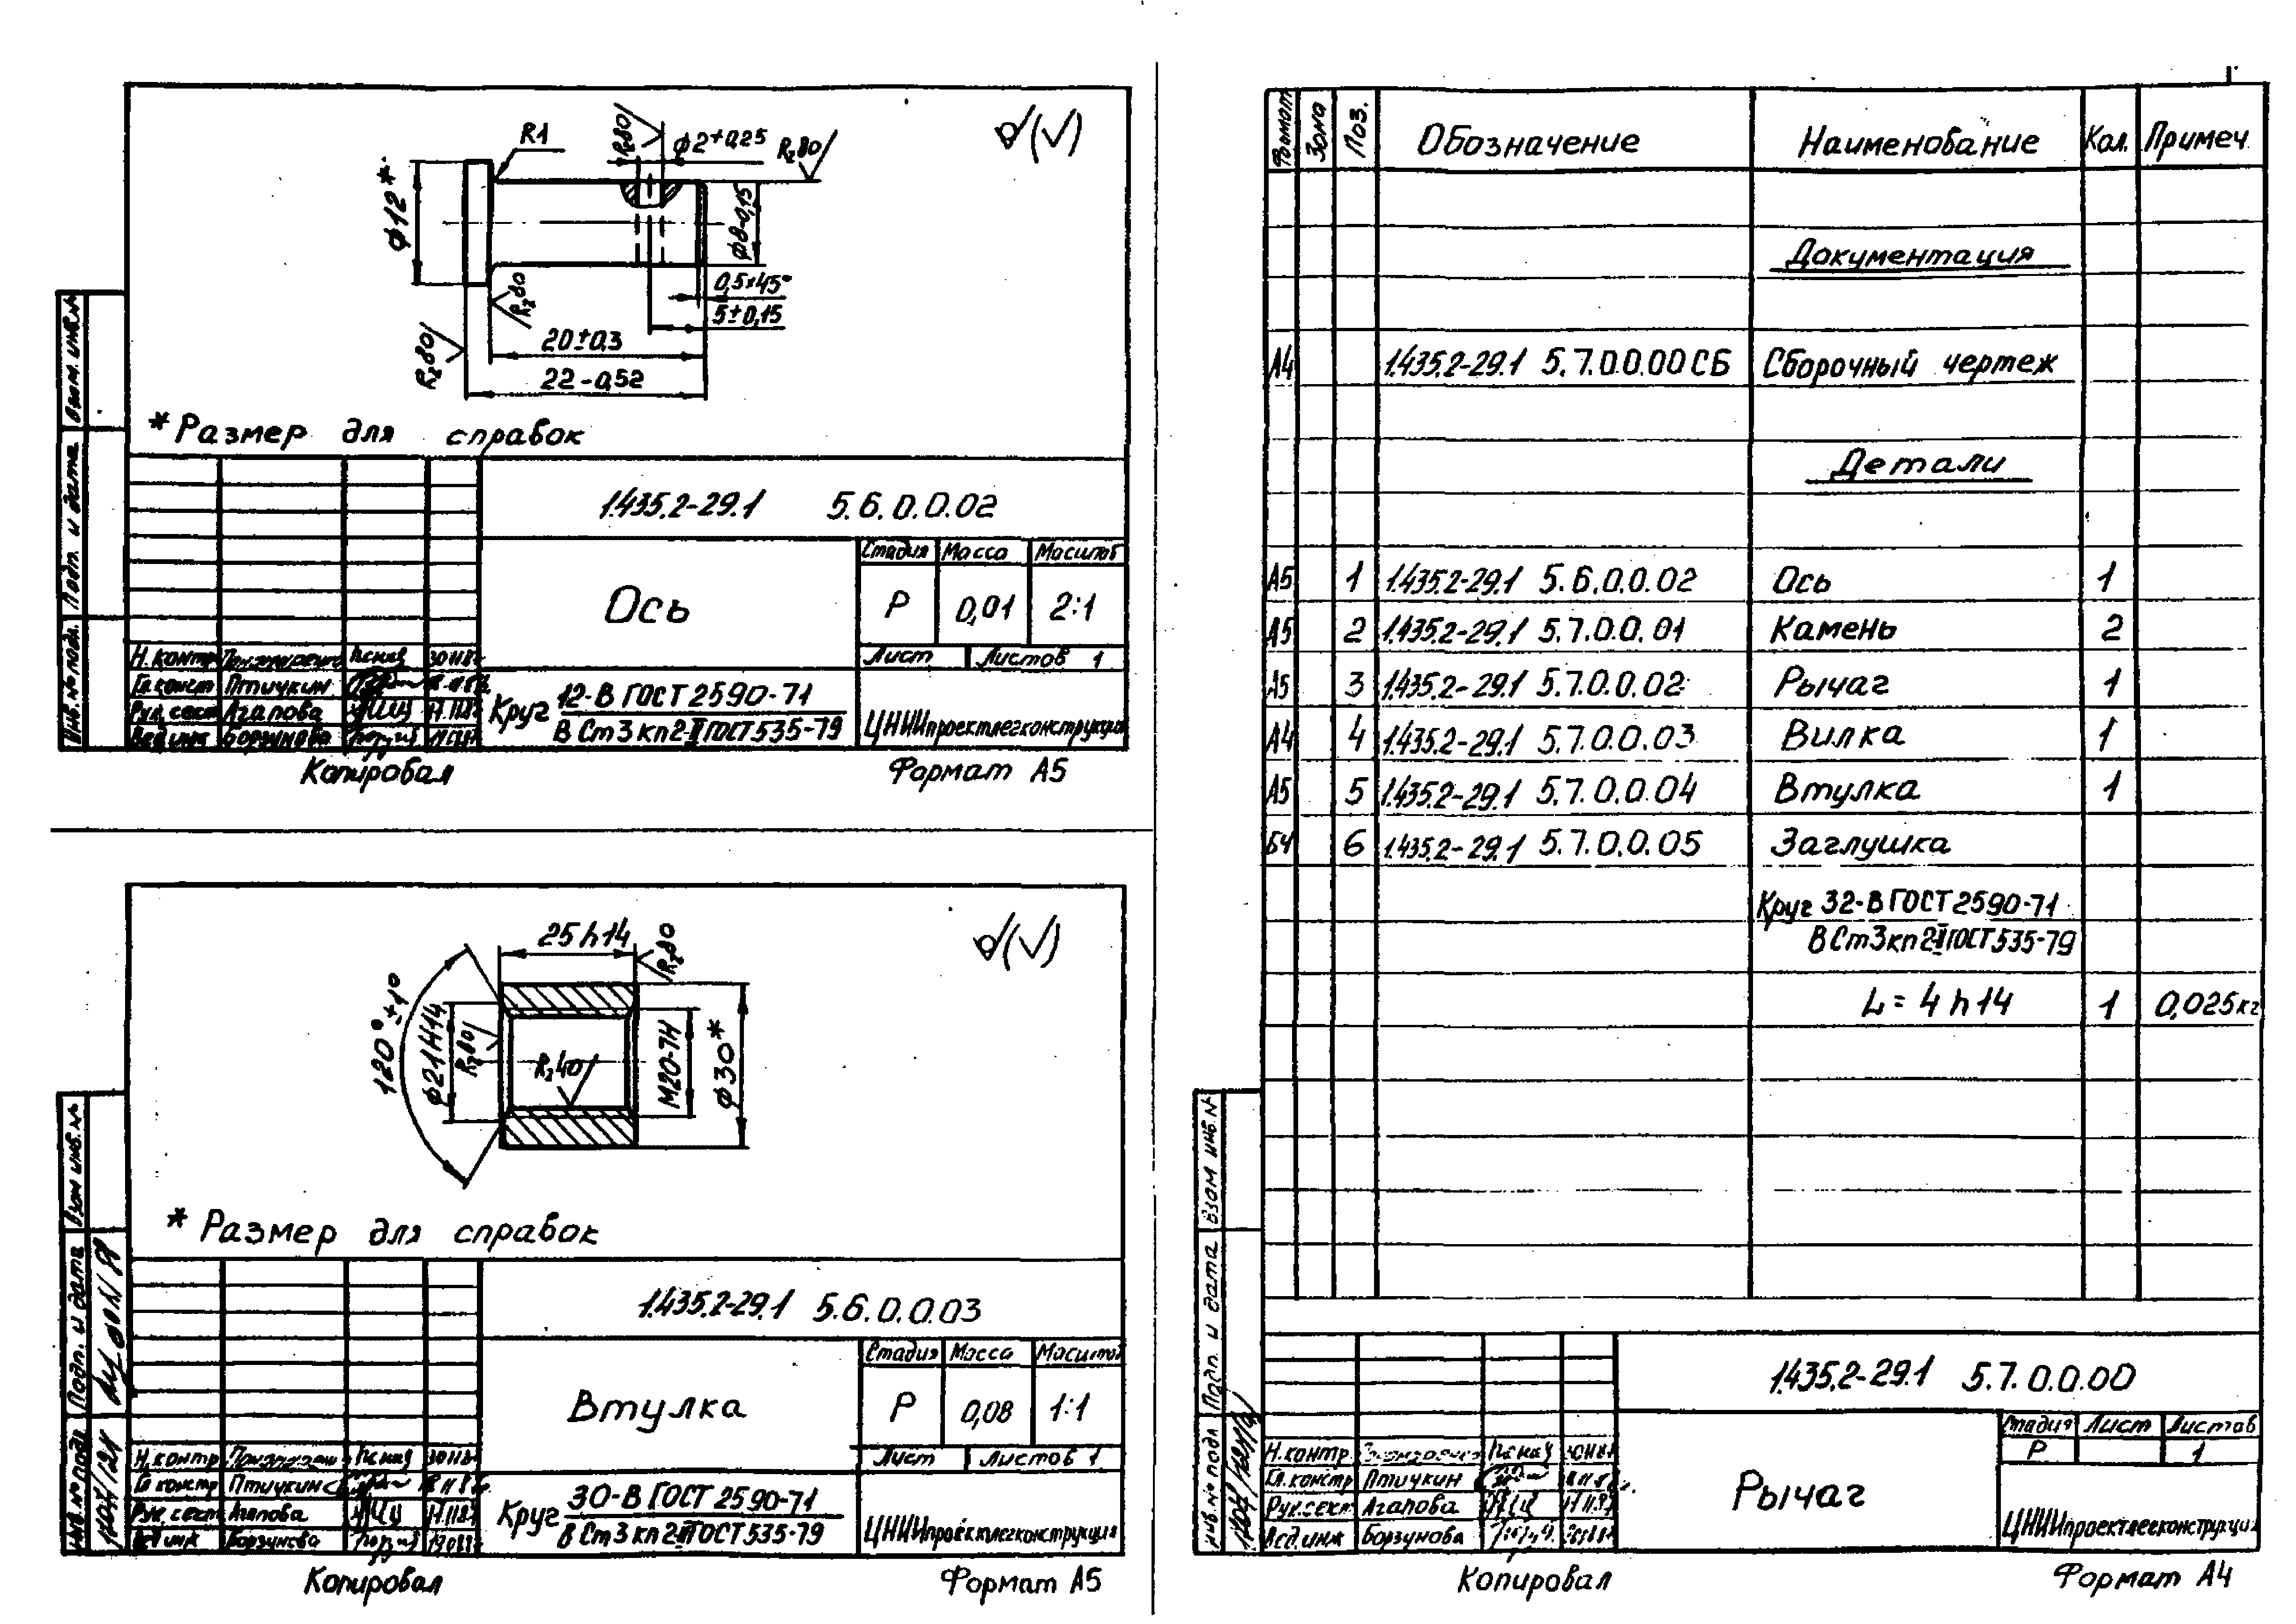 R1
Rz80
ϕ2+0,25
Rz80
ϕ12*
ϕ8-0,15
Rz80
0,5×45°
5±0,15
Rz80
20±0,3
22-0,52
* Размер для справок
Взам. инв. №
Подп. и дата
Инв. № подл.
1.435.2-29.1 5.6.0.0.02
Ось
Стадия Масса Масштаб
Р 0,01 2:1
Лист Листов 1
Н. контр
Гл. конст Птичкин
Рук. сект Агапова
Вед. инж Борзунова
Круг 12-В ГОСТ 2590-71
В Ст3 кп2-II ГОСТ 535-79
ЦНИИпроектлегконструкция
Копировал Формат А5
25 h14
Rz80
120°±1°
ϕ21H14
Rz80
Rz40
М20-7Н
ϕ30*
* Размер для справок
Взам. инв. №
Подп. и дата
Инв. № подл.
1.435.2-29.1 5.6.0.0.03
Втулка
Стадия Масса Масштаб
Р 0,08 1:1
Лист Листов 1
Н. контр
Гл. констр Птичкин
Рук. сект Агапова
Вед. инж Борзунова
Круг 30-В ГОСТ 2590-71
В Ст3 кп2-II ГОСТ 535-79
ЦНИИпроектлегконструкция
Копировал Формат А5
Формат Зона Поз. Обозначение Наименование Кол. Примеч
Документация
А4 1.435.2-29.1 5.7.0.0.00 СБ Сборочный чертеж
Детали
А5 1 1.435.2-29.1 5.6.0.0.02 Ось 1
А5 2 1.435.2-29.1 5.7.0.0.01 Камень 2
А5 3 1.435.2-29.1 5.7.0.0.02 Рычаг 1
А4 4 1.435.2-29.1 5.7.0.0.03 Вилка 1
А5 5 1.435.2-29.1 5.7.0.0.04 Втулка 1
БЧ 6 1.435.2-29.1 5.7.0.0.05 Заглушка
Круг 32-В ГОСТ 2590-71
В Ст3 кп2-II ГОСТ 535-79
L = 4 h14 1 0,025кг
Взам инв. №
Подп. и дата
Инв. № подл
1.435.2-29.1 5.7.0.0.00
Рычаг
Стадия Лист Листов
Р 1
Н. контр
Гл. констр Птичкин
Рук. сект Агапова
Вед. инж Борзунова
ЦНИИпроектлегконструкция
Копировал Формат А4